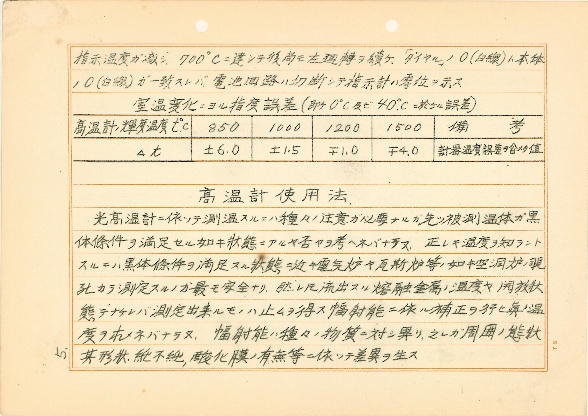 指示温度ガ減シ 700℃ニ達シテ後尚モ左廻轉ヲ續ケ「ダイヤル」ノ0(白線)ト本体
ノ0(白線)ガ一致スレバ 電池回路ハ切断シテ指示計ハ零位ヲ示ス
室温変化ニヨル指度誤差(即チ0℃及ビ40℃ニ於ケル誤差)
高温計ノ輝度温度t℃ 850 1000 1200 1500 備考
Δt ±6.0 ±1.5 ∓1.0 ∓4.0 計器温度誤差ヲ含メタ値
高温計使用法
光高温計ニ依ッテ測温スルニハ種々ノ注意ガ必要ナルガ先ヅ被測温体ガ黒
体條件ヲ満足セル如キ状態ニアルヤ否ヤヲ考ヘネバナラヌ 正シキ温度ヲ知ラント
スルニハ黒体條件ヲ満足スル状態ニ近キ電気炉ヤ瓦斯炉等ノ如キ空洞炉ノ覗
孔カラ測定スルノガ最モ完全ナリ 然シ 流出スル熔融金属ノ温度ヤ開放状
態デナケレバ測定出来ルモノハ止ムヲ得ズ輻射能ニ依ル補正ヲ行ヒ眞ノ温
度ヲ求メネバナラヌ 輻射能ハ種々ノ物質ニ対シ異リ 周囲ノ態状
其形状 酸化膜ノ有無等ニ依ッテ差異ヲ生ス
5.